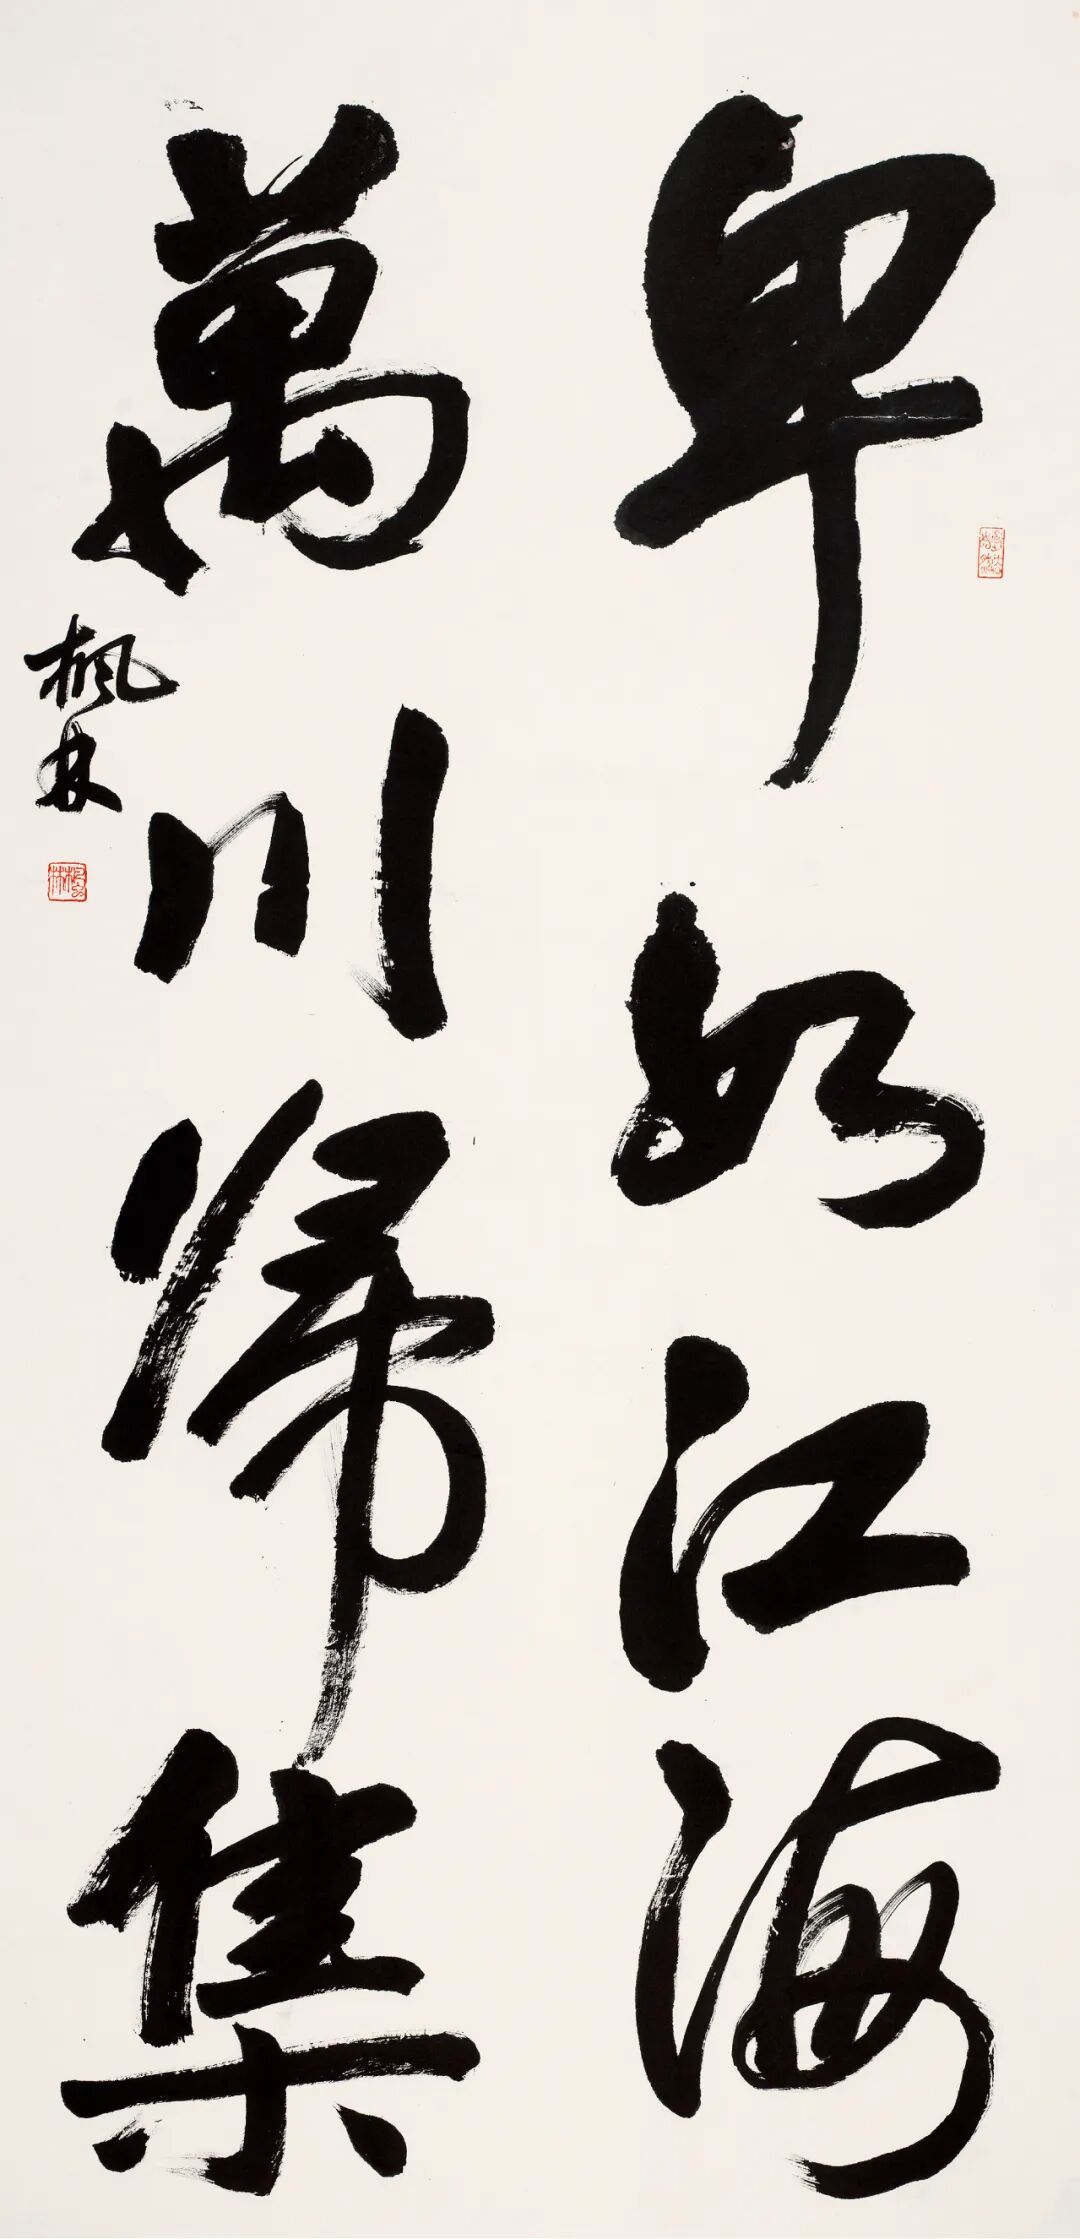 卑如江海
萬川歸集
楓林